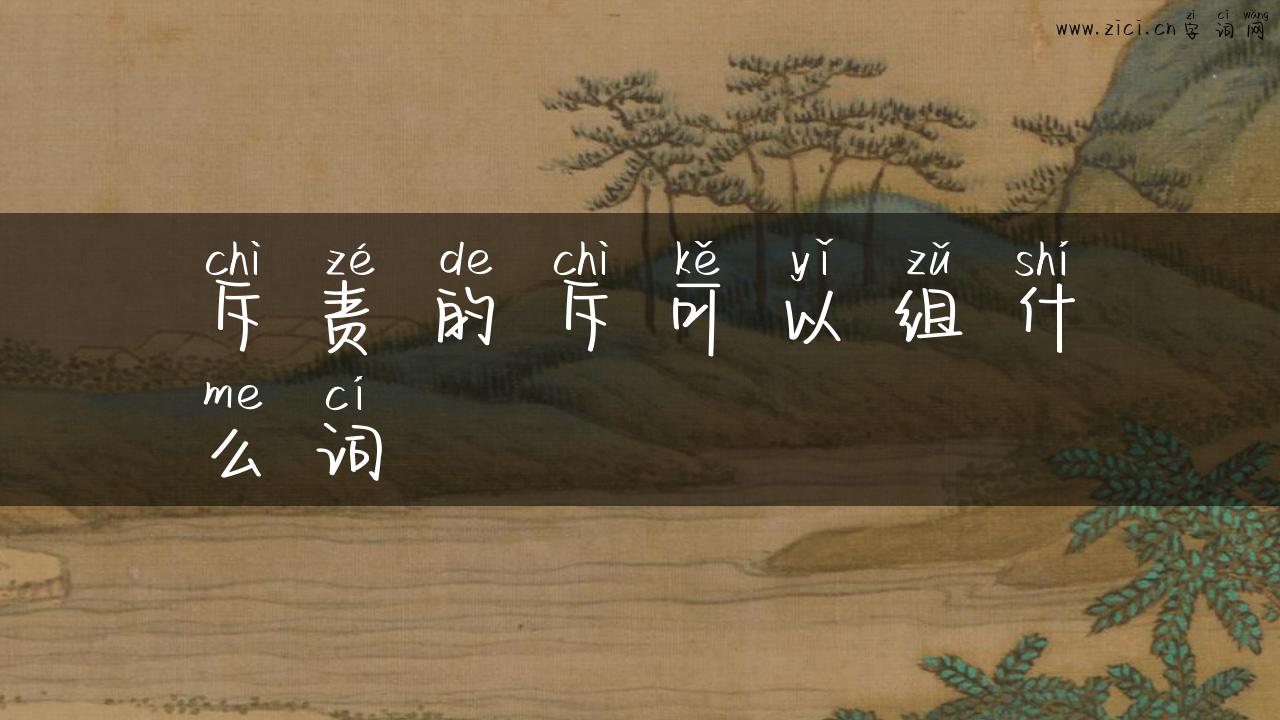 zì cí wǎng
www.zici.cn 字词网
chì zé de chì kě yǐ zǔ shí
斥责的斥可以组什
me cí
么词